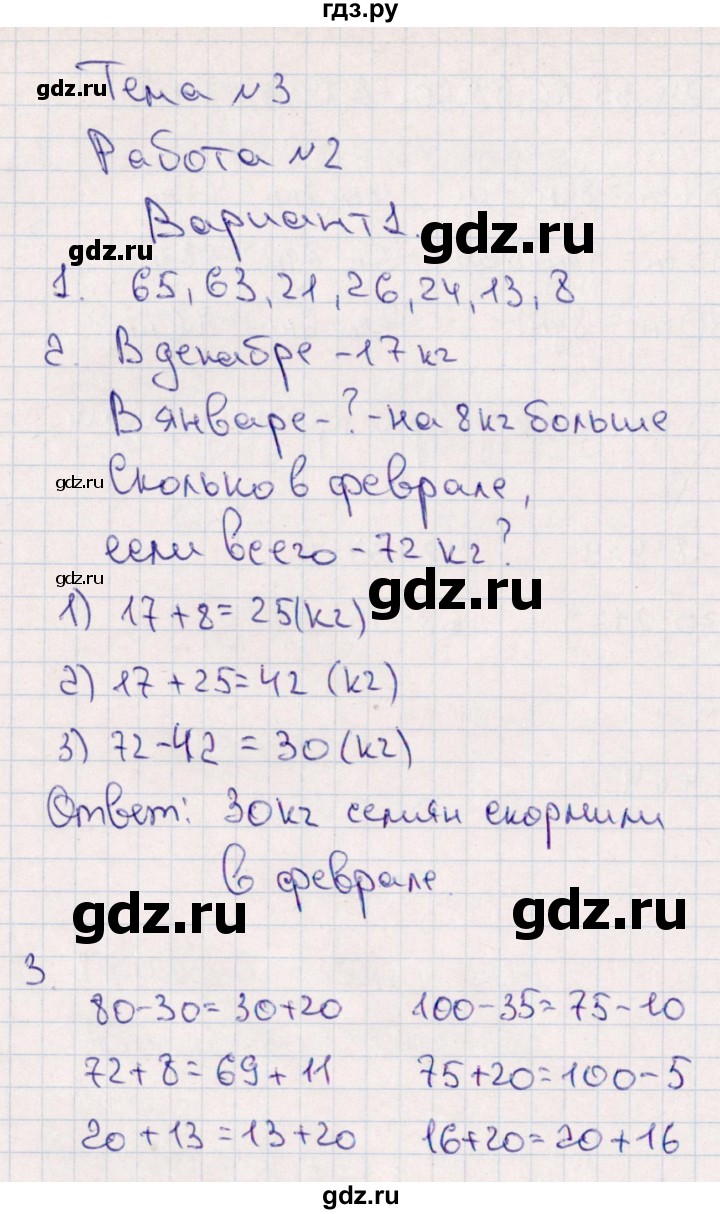 гдз.ру
Тема №3
gdz.ru
Работа №2
Вариант 1.
gdz.ru
gdz.ru
1. 65, 63, 21, 26, 24, 13, 8
2. В декабре - 17 кг
В январе - ? - на 8 кг больше
gdz.ru
Сколько в феврале,
если всего - 72 кг?
gdz.ru
gdz.ru
1) 17 + 8 = 25 (кг)
2) 17 + 25 = 42 (кг)
3) 72 - 42 = 30 (кг)
Ответ: 30 кг семян скормили
в феврале.
gdz.ru
gdz.ru
3.
80 - 30 = 30 + 20 100 - 35 = 75 - 10
72 + 8 = 69 + 11 75 + 20 = 100 - 5
20 + 13 = 13 + 20 16 + 20 = 20 + 16
gdz.ru